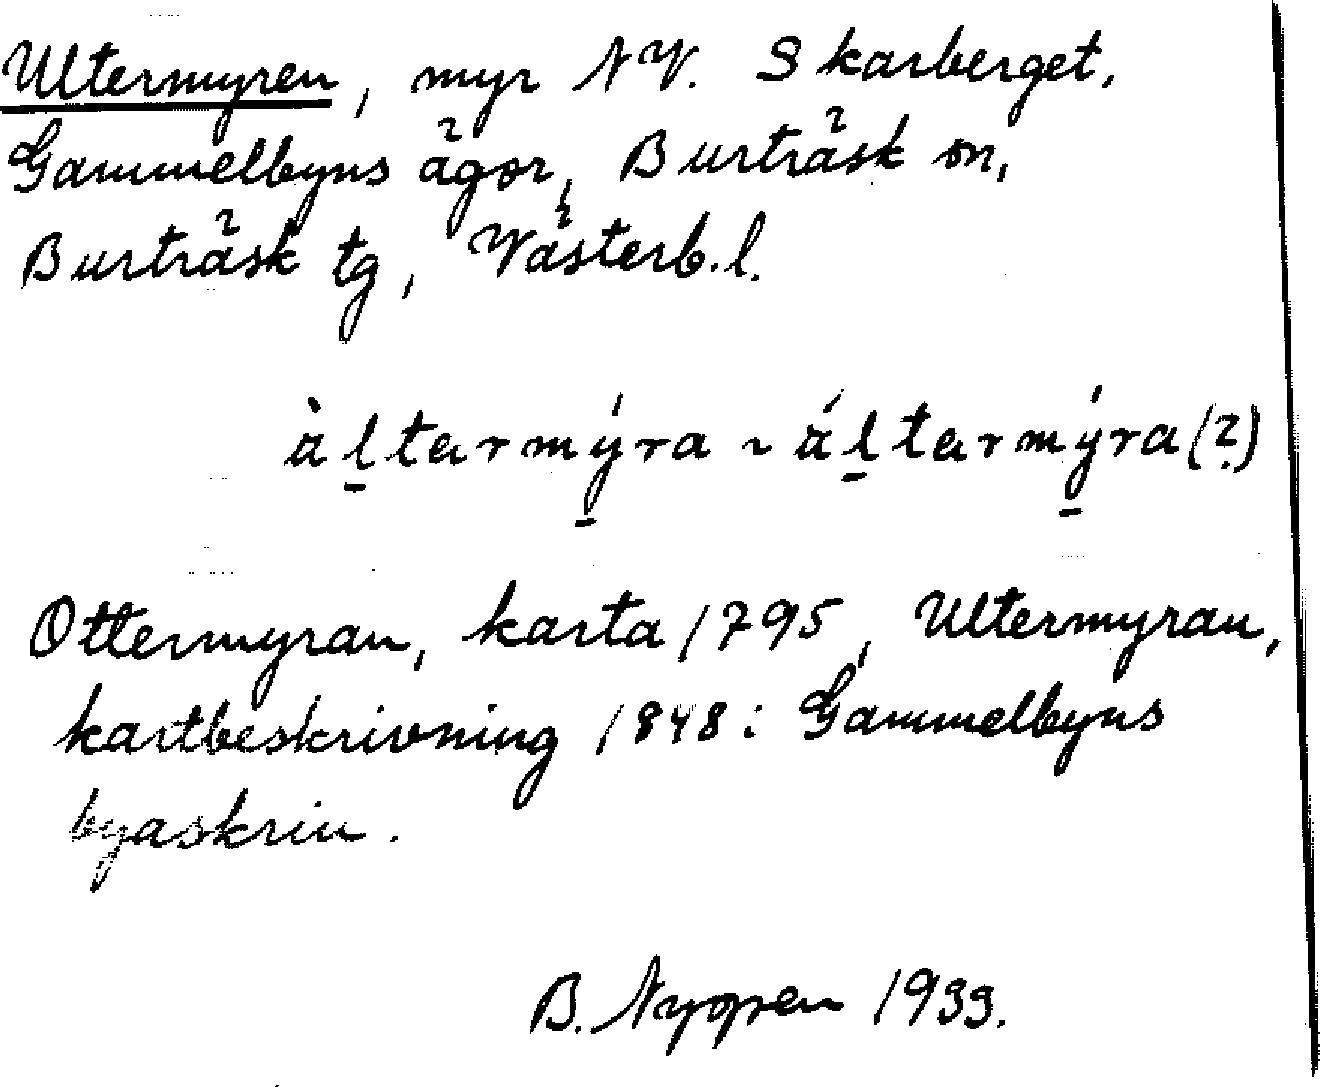 Ultermyren, myr NV. Skarberget,
Gammelbyns ägor, Burträsk sn,
Burträsk tg, Västerb. l.
àltarmýra ~ áltarmýra (?)
Ottermyran, karta 1795, Ultermyran,
kartbeskrivning 1848: Gammelbyns
byaskrin.
B. 1933.